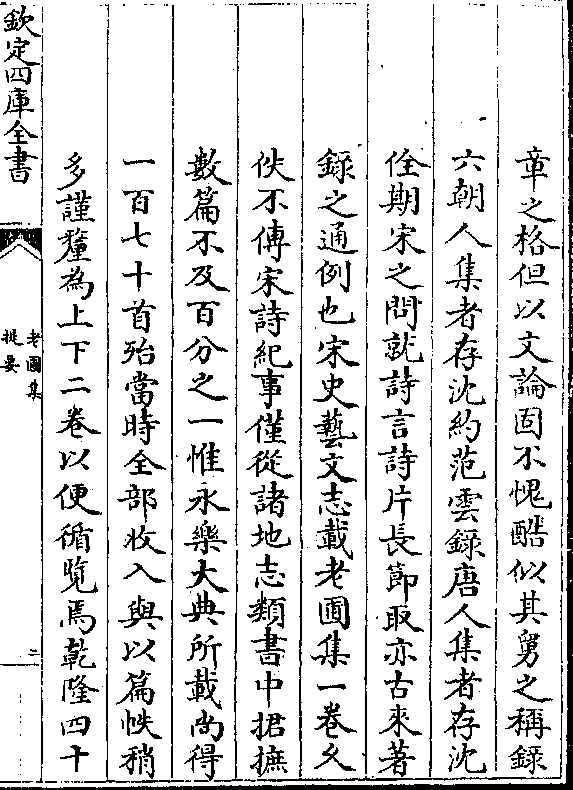 章之格但以文論固不愧酷似其舅之稱録
六朝人集者存沈約范雲録唐人集者存沈
佺期宋之問就詩言詩片長節取亦古來著
録之通例也宋史藝文志載老圃集一卷久
佚不傳宋詩紀事僅從諸地志類書中捃摭
數篇不及百分之一惟永樂大典所載尚得
一百七十首殆當時全部收入與以篇帙稍
多謹釐為上下二卷以便循覽焉乾隆四十
欽定四庫全書
老圃集
提要
二